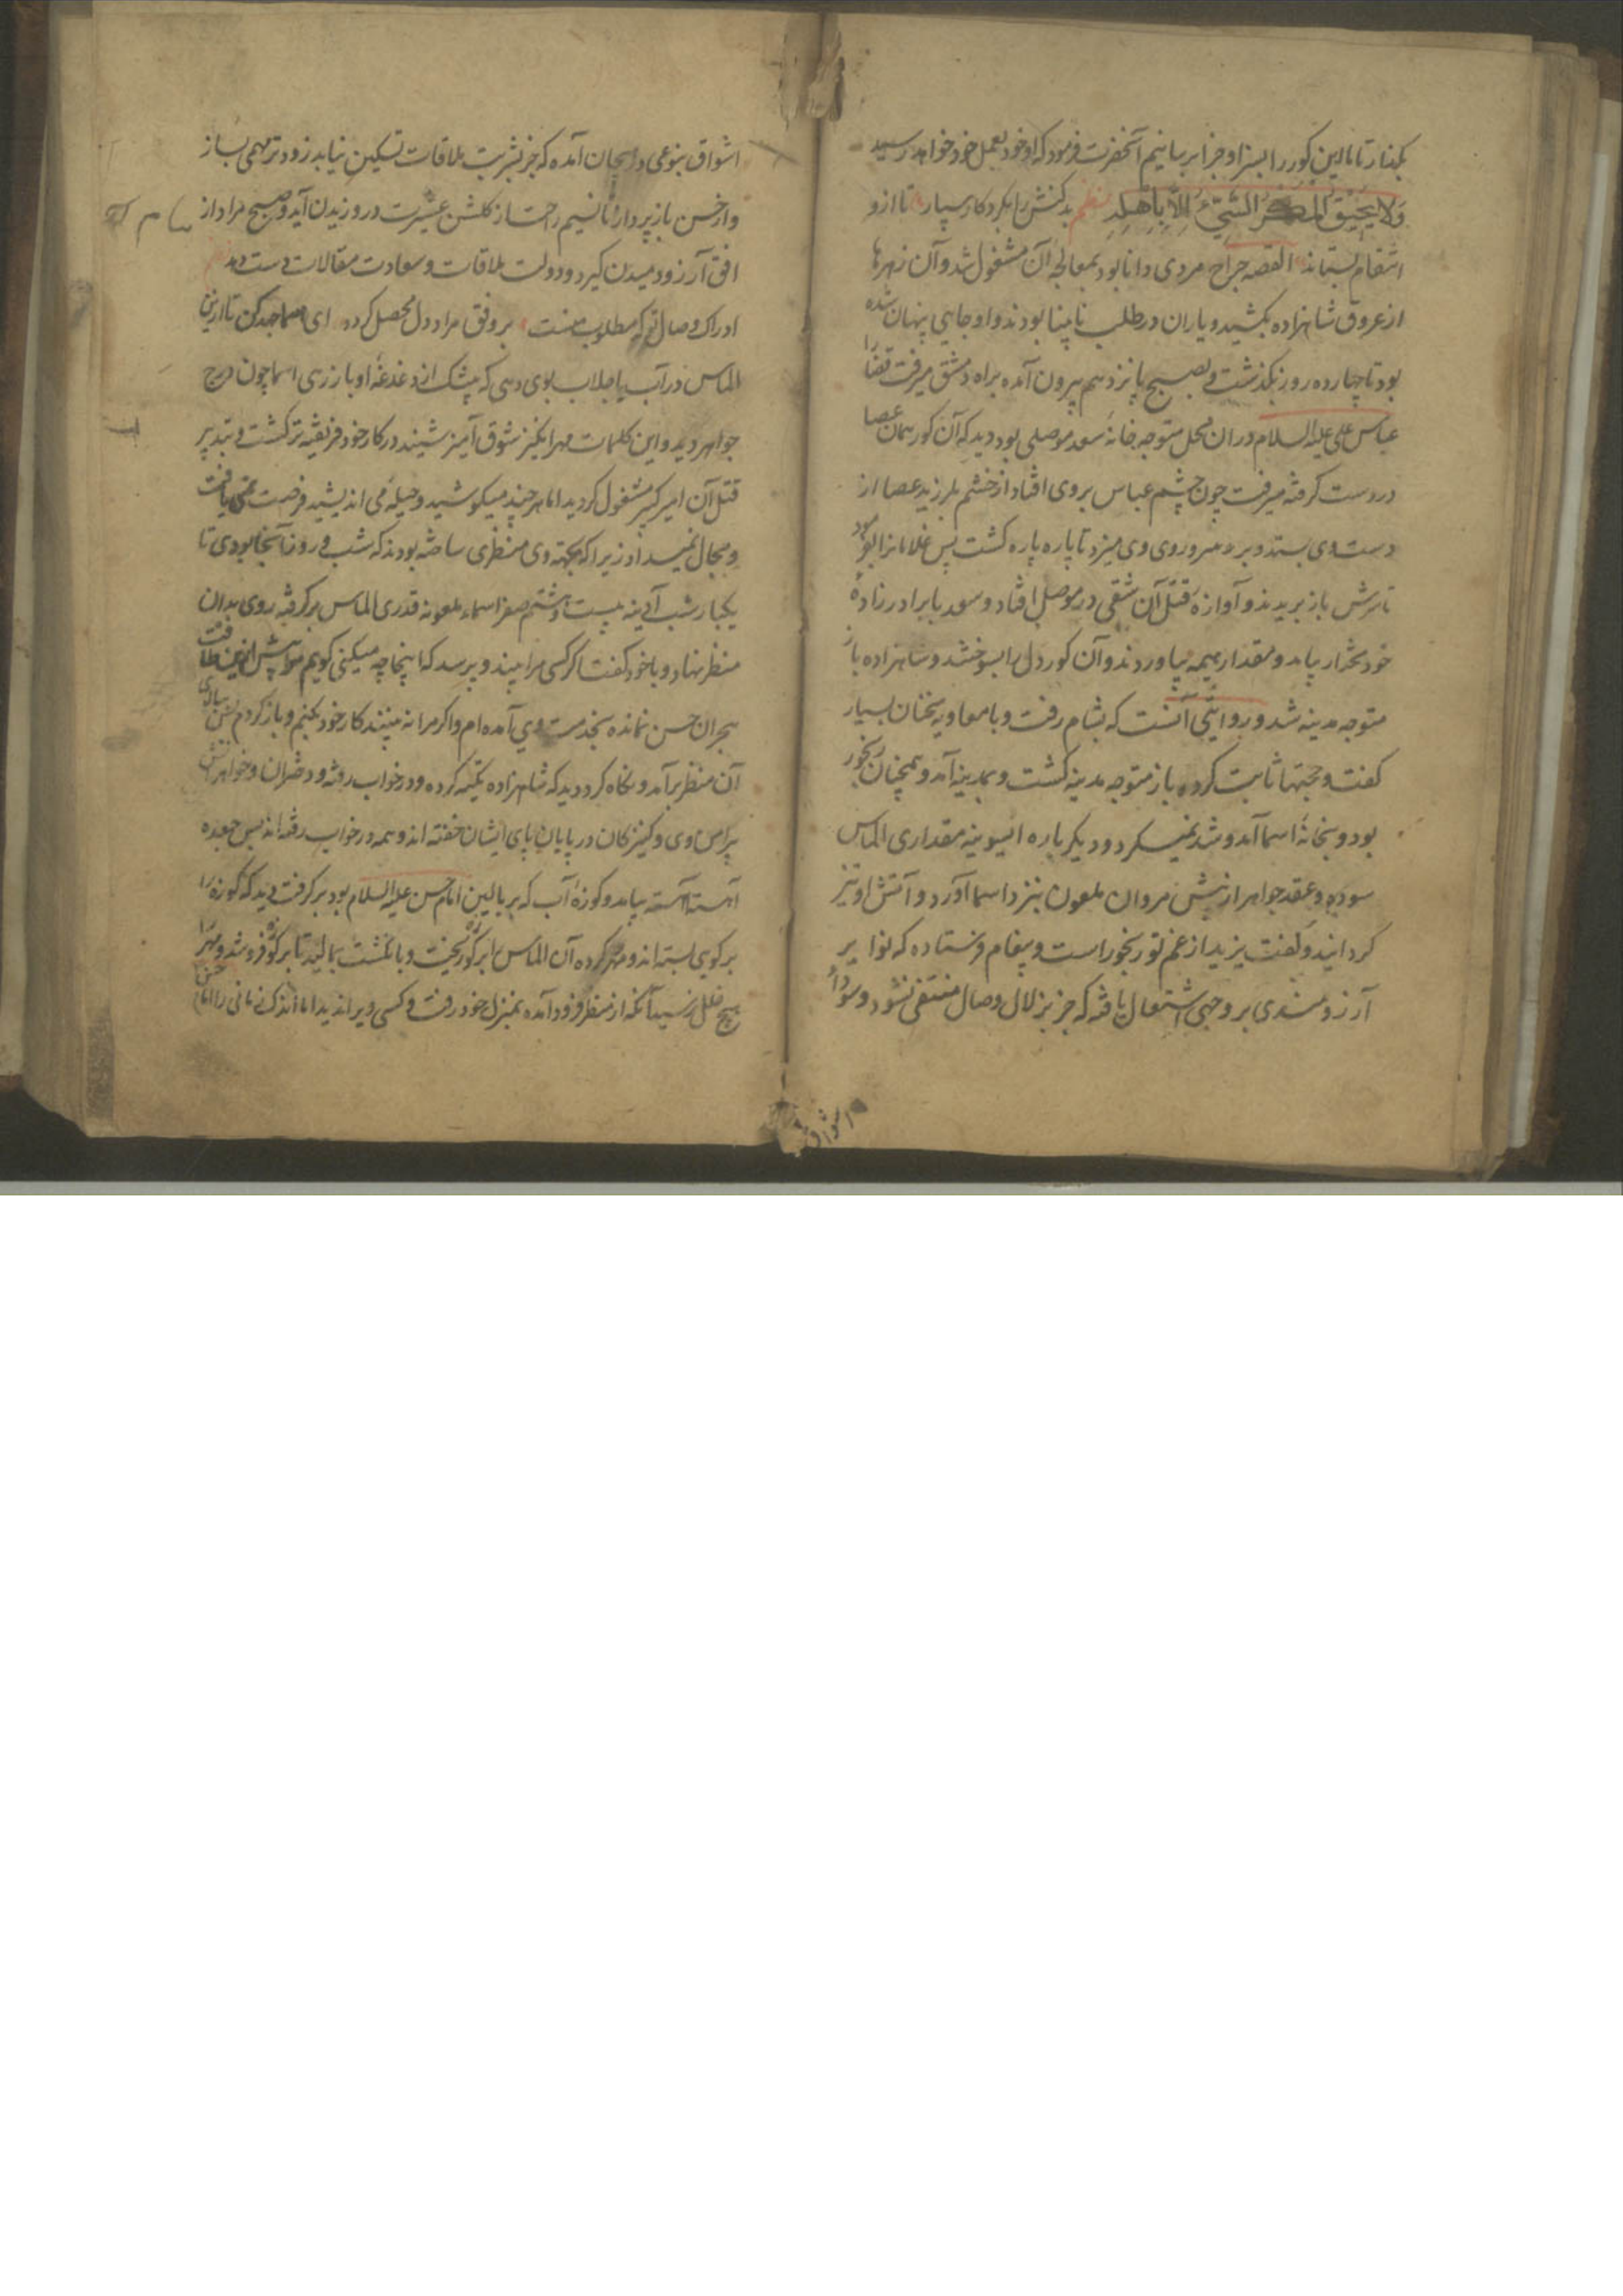 بگذار تا ما این کور را بسزا و جزا برسانیم آنحضرت فرمود که او خود بعمل خود خواهد رسید
وَلا یَحیقُ المَکرُ السَّیِّئُ اِلاّ بِاَهلِهِ نظم بدکنش را بکردکار سپار تا ازو
انتقام بستاند القصه جراح مردی دانا بود بمعالجه آن مشغول شد و آن زهرها
از عروق شاهزاده بکشید و یاران در طلب نابینا بودند و او جایی پنهان شده
بود تا چهارده روز بگذشت و بصبح پانزدهم بیرون آمده براه دمشق میرفت قضا را
عباس علی علیه السلام در ان محل متوجه خانه سعد موصلی بود دید که آن کور همان عصا
در دست گرفته میرفت چون چشم عباس بروی افتاد از خشم بلرزید عصا از
دست وی بستد و بر سر و روی وی میزد تا پاره پاره گشت پس غلامانرا بفرمود
تا سرش باز بریدند و آوازه قتل آن شقی در موصل افتاد و سعد با برادرزاده
خود مختار بیامد و مقدار هیمه بیاوردند و آن کوردل را بسوختند و شاهزاده باز
متوجه مدینه شد و بروایتی آنست که بشام رفت و با معاویه سخنان بسیار
گفت و حجتها ثابت کرده باز متوجه مدینه گشت و بمدینه آمد و همچنان رنجور
بود و بخانه اسما آمد و شد نمیکرد و دیگر باره ایسونیه مقداری الماس
سوده و عقد جواهر از پیش مروان ملعون بنزد اسما آورد و آتش او تیز
گردانید و گفت یزید از غم تو رنجور است و پیغام فرستاده که نوایر
آرزومندی بر وجهی اشتعال یافته که جز بزلال وصال منتفی نشود و سودای
اشواق
اشواق بنوعی در هیجان آمده که جز بشربت ملاقات تسکین نیابد زودتر مهمی بساز
و از حسن باز پرداز تا نسیم راحت از گلشن عشرت در وزیدن آید و صبح مراد از
افق آرزو دمیدن گیرد و دولت ملاقات و سعادت مقالات دست دهد
ادراک وصال تو که مطلوب منست بر وفق مراد دل محصل گردد ای اسما جهد کن تا ازین
الماس در آب یا جلاب بوی دهی که بیشک از دغدغه او باز رهی اسما چون درج
جواهر دید و این کلمات مهرانگیز شوق آمیز شنید در کار خود فریفته تر گشت و بتدبیر
قتل آن امیر کبیر مشغول گردید اما هر چند میکوشید و حیله می اندیشید فرصت نمی یافت
و مجال نمیداد زیرا که بجهته وی منظری ساخته بودند که شب و روز آنجا بودی تا
یکبار شب آدینه بیست و هشتم صفر اسماء ملعونه قدری الماس برگرفته روی بدان
منظر نهاد و با خود گفت اگر کسی مرا بیند و پرسد که اینجا چه میکنی گویم مرا بیش ازین طاقت
هجران حسن نمانده بخدمت وی آمده ام و اگر مرا نه بینند کار خود بکنم و بازگردم پس
آن منظر برآمد و نگاه کرد دید که شاهزاده تکیه کرده و در خواب رفته و دختران و خواهرانش
پیرامن وی و کنیزکان در پایان پای ایشان خفته اند و همه در خواب رفته اند پس جعده
آهسته آهسته بیامد و کوزه آب که بر بالین امام حسن علیه السلام بود برگرفت دید که کوزه را
سر بسته اند و مهر کرده آن الماس را بر کوزه ریخت و بانگشت بمالید تا بر کوزه فرو شد و مهر را
هیچ خلل نرسید آنگه از منظر فرود آمده بمنزل خود رفت و کسی ویرا ندید اما اندک زمانی را امام حسن